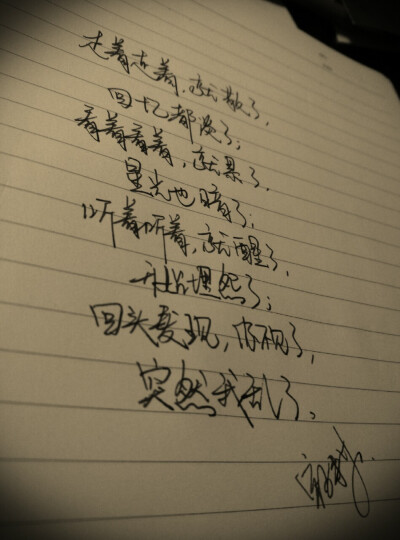 走着走着,就散了,
回忆都淡了;
看着看着,就累了,
星光也暗了;
听着听着,就醒了,
开始埋怨了;
回头发现,你不见了,
突然我乱了。